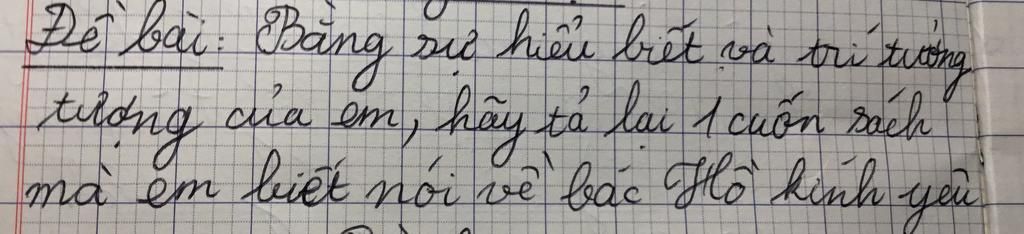 Đề bài: Bằng sự hiểu biết và trí tưởng
tượng của em, hãy tả lại 1 cuốn sách
mà em biết nói về bác Hồ kính yêu